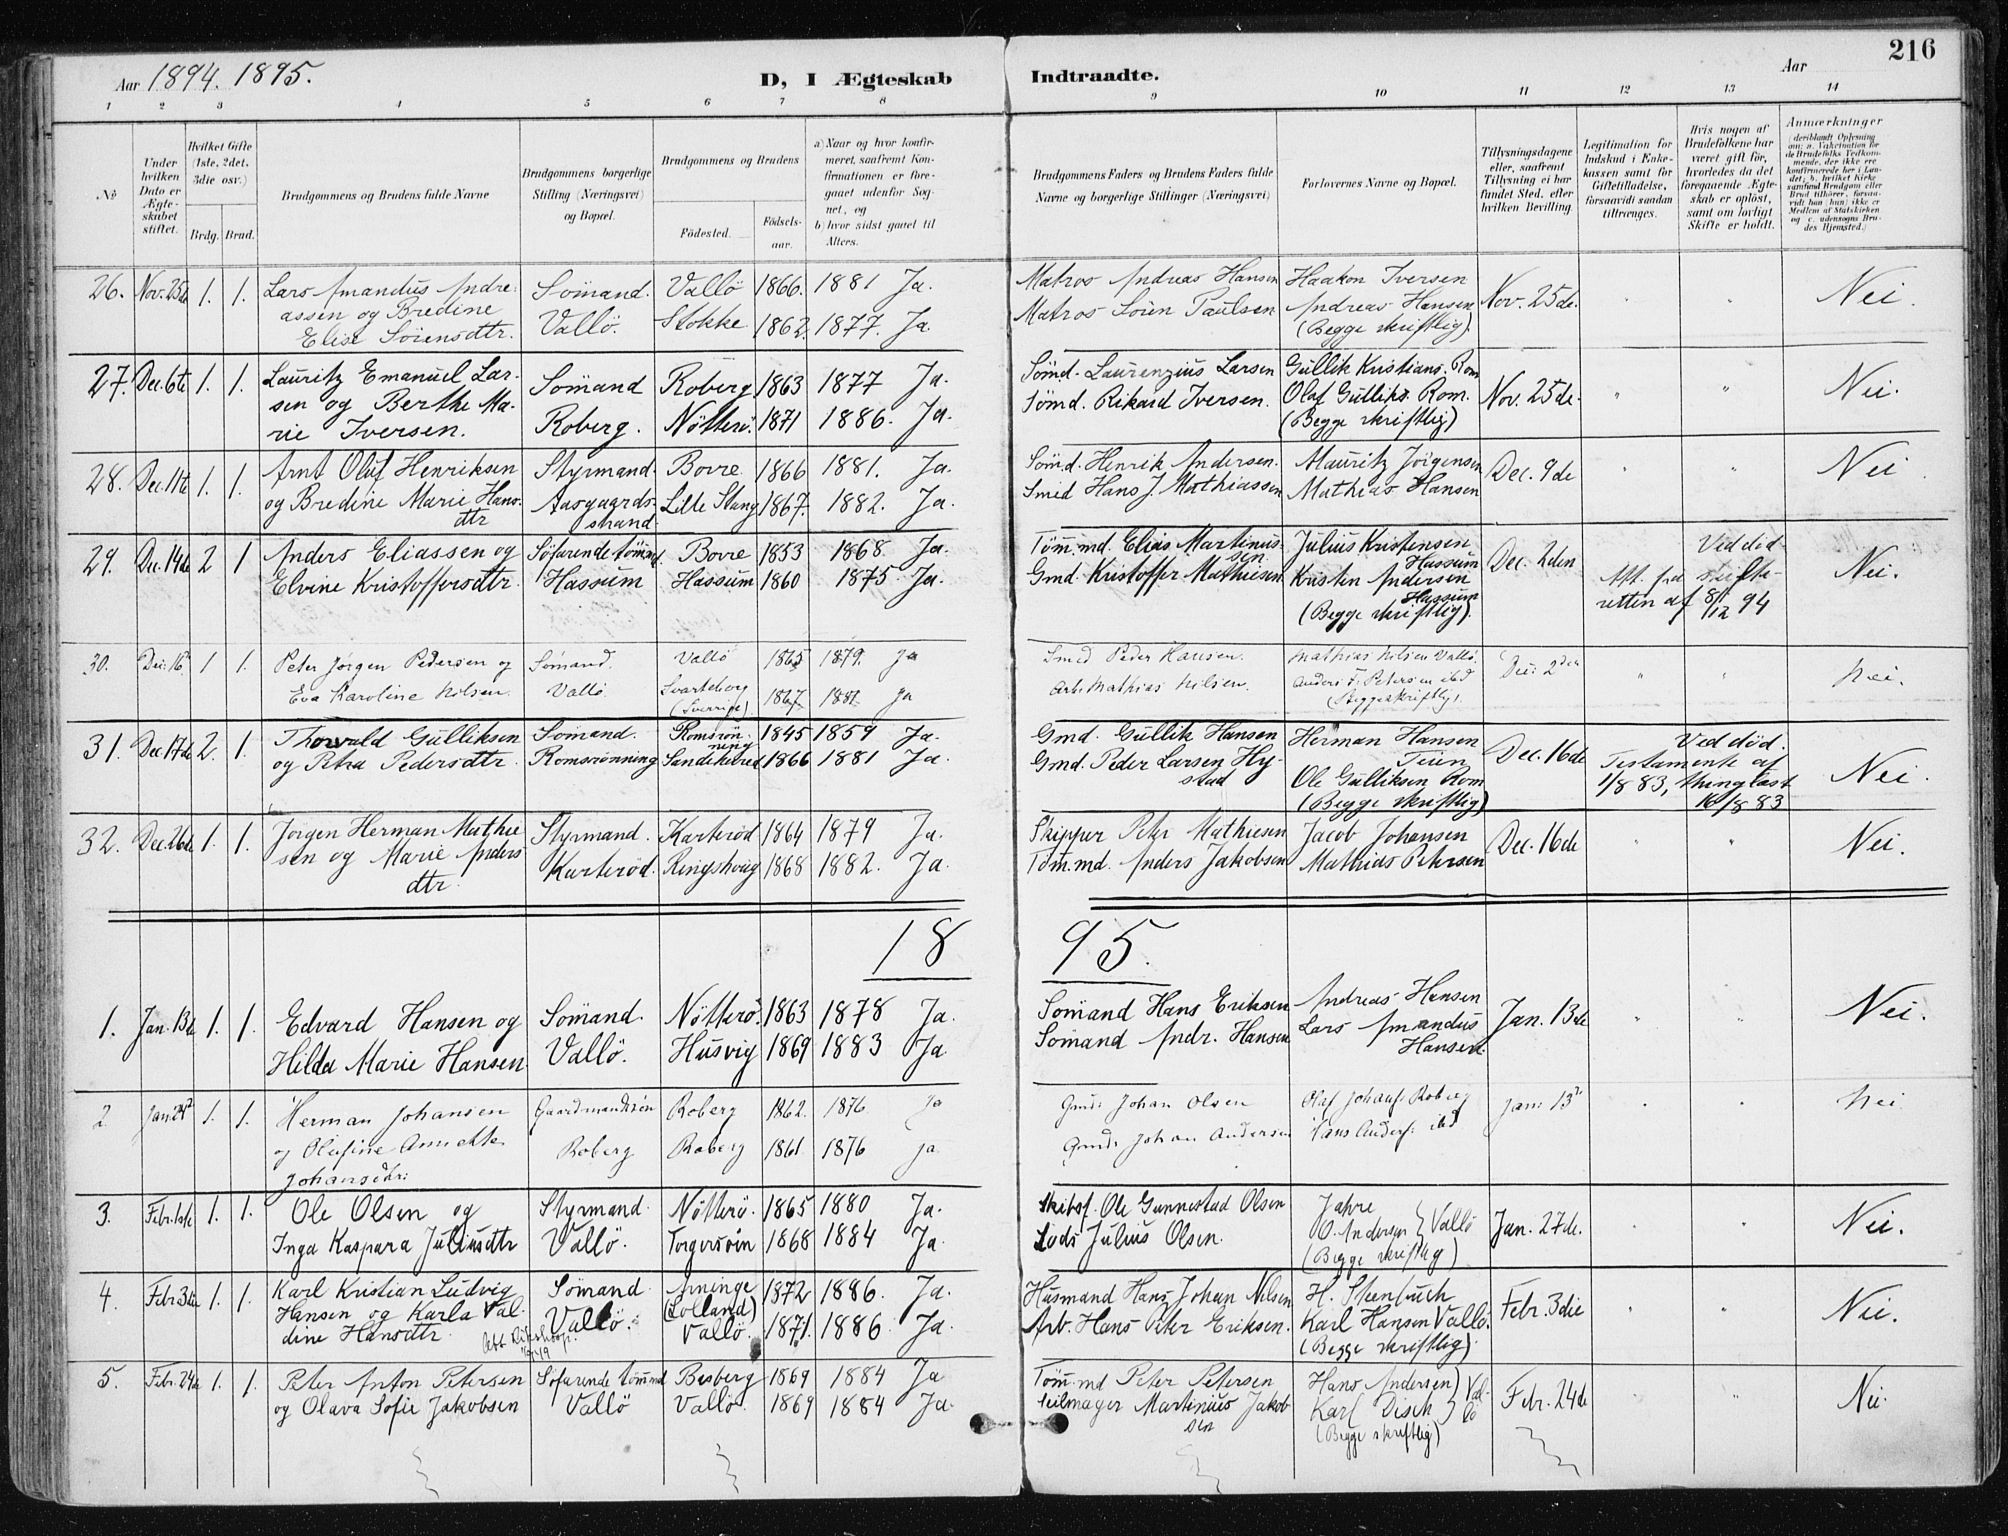 216
Aar 1894. 1895.
D, I Ægteskab Indtraadte.
Aar
1 2 3 4 5 6 7 8 9 10 11 12 13 14
No
Under hvilken Dato er Ægteskabet stiftet.
Hvilket Gifte (1ste, 2det, 3die osv.)
Brdg. Brud.
Brudgommens og Brudens fulde Navne
Brudgommens borgerlige Stilling (Næringsvei) og Bopæl.
Brudgommens og Brudens
Fødested. Fødselsaar.
a) Naar og hvor konfirmeret, saafremt Konfirmationen er foregaaet udenfor Sognet, og
b) hvor sidst gaaet til Alters.
Brudgommens Faders og Brudens Faders fulde Navne og borgerlige Stillinger (Næringsvei)
Forlovernes Navne og Bopæl.
Tillysningsdagene eller, saafremt Tillysning ei har fundet Sted, efter hvilken Bevilling.
Legitimation for Indskud i Enkekassen samt for Giftetilladelse, forsaavidt saadan tiltrænges.
Hvis nogen af Brudefolkene har været gift før, hvorledes da det foregaaende Ægteskab er opløst, samt om lovligt Skifte er holdt.
Anmærkninger (deriblandt Oplysning om: a. Vakcination for de Brudefolks Vedkommende, der ikke ere konfirmerede her i Landet; b. hvilket Kirkesamfund Brudgom eller Brud tilhører, forsaavidt han (hun) ikke er Medlem af Statskirken og c. udensogns Brudes Hjemsted.)
26. Nov. 25de 1. 1. Lars Amandus Andre- Sömand. Vallö 1866. 1881 Ja. Matros Andreas Hansen Haakon Iversen Nov. 25de. " " Nei.
assen og Bredine Vallö. Stokke 1862. 1877. Ja Matros Sören Paulsen Andreas Hansen
Elise Sörensdtr. (Begge skriftlig)
27. Dec. 6te 1. 1. Lauritz Emanuel Lar- Sömand Roberg 1863 1877 Ja. Sömd. Laurenzius Larsen Gullik Kristians. Rom Nov. 25de. " " Nei.
sen og Berthe Ma- Roberg. Nötterö. 1871 1886. Ja. Sömd. Rikard Iversen. Olaf Gulliks. Rom.
rie Iversen. (Begge skriftlig)
28. Dec. 11te 1. 1. Arnt Oluf Henriksen Styrmand. Borre 1866 1881. Ja. Sömd. Henrik Andersen. Mauritz Jörgensen Dec. 9de " " Nei
og Bredine Marie Hans- Aasgaards- Lille Stang 1867. 1882. Ja. Smed Hans J. Mathiassen Mathias Hansen
dtr strand.
29. Dec. 14de 2 1 Anders Eliassen og Söfarende tömmd. Borre 1853 1868 Ja. Töm.md. Elias Martinus- Julius Kristensen Dec. 2den Ved död. Nei.
Elvine Kristoffersdtr. Hassum Hassum 1860 1875. Ja. sen Hassum
Gmd. Kristoffer Mathiesen Kristen Andersen Att. fra skifte-
Hassum retten af 8/12 94
(Begge skriftlig).
30. Dec. 16 1 1. Peter Jörgen Pedersen og Sömand. Vallö 1865 1879. Ja Smed Peder Hansen. Mathias Nilsen Vallö. Dec. 2den " " Nei.
Eva Karoline Nilsen. Vallö. Svarteborg 1867 1881 Ja Arb. Mathias Nilsen. Anders J. Petersen ibd
(Sverrige). (Begge skriftlig).
31. Dec. 17de 2. 1. Thorvald Gulliksen Sömand. Romsrön- 1845 1859 Ja. Gmd. Gullik Hansen Herman Hansen Dec. 16de Ved död. Nei.
og Petra Pedersdtr. Romsrönning ning Gmd. Peder Larsen Hy- Teien Testamente af
Sandehered 1866 1881 Ja. stad Ole Gulliksen Rom 1/8 83, thinglæst
(Begge skriftlig) 16/8 83
32. Dec. 26de 1. 1. Jörgen Herman Mathie Styrmand. Karteröd 1864 1879 Ja. Skipper Peter Mathiesen Jacob Johansen Dec. 16de " " Nei.
sen og Marie Anders Karteröd. Ringshoug 1868 1882. Ja. Töm.md. Anders Jakobsen Mathias Petersen
dtr.
1895.
1. Jan. 13de 1. 1. Edvard Hansen og Sömand. Nötterö. 1863 1878 Ja. Sömand Hans Eriksen Andreas Hansen Jan. 13de " " Nei.
Hilda Marie Hansen Vallö. Husvig 1869 1883 Ja Sömand Andr. Hansen Lars Amandus
Hansen.
2. Jan. 24 1. 1. Herman Johansen Gaardmandssön Roberg 1862. 1876 Ja Gmd. Johan Olsen Olaf Johans. Roberg Jan. 13 " " Nei
og Olufine Annette Roberg Roberg 1861 1876 Ja. Gmd. Johan Andersen Hans Anders. ibd
Johansdtr.
3. Febr. 1ste 1. 1. Ole Olsen og Styrmand. Nötterö. 1865 1880 Ja. Skibsf. Ole Gunnestad Olsen Jahre Jan. 27de. " " Nei.
Inga Kaspara Juliusdtr Vallö. Torgersöien 1868 1884 Ja. Lods Julius Olsen. O. Andersen } Vallö
(Begge skriftlig)
4. Febr. 3die 1. 1. Karl Kristian Ludvig Sömand. Aminge 1872 1886. Ja. Husmand Hans Johan Nilsen H. Stenbuch Febr. 3die " " Nei.
Hansen og Karla Val- Vallö. (Lolland) Arb. Hans Peter Eriksen. Karl Hansen Vallö.
dine Hansdtr. Vallö. 1871. 1886. Ja. (Begge skriftlig)
5. Febr. 24de 1. 1. Peter Anton Petersen Söfarende tömmd Besberg 1869 1884 Ja Töm.md Peter Petersen Hans Andersen } Val- Febr. 24de " " Nei.
og Olava Sofie Jakobsen Vallö Vallö. 1869 1884 Ja. Seilmager Martinius Jakob Karl Disch } lö
sen (Begge skriftlig)